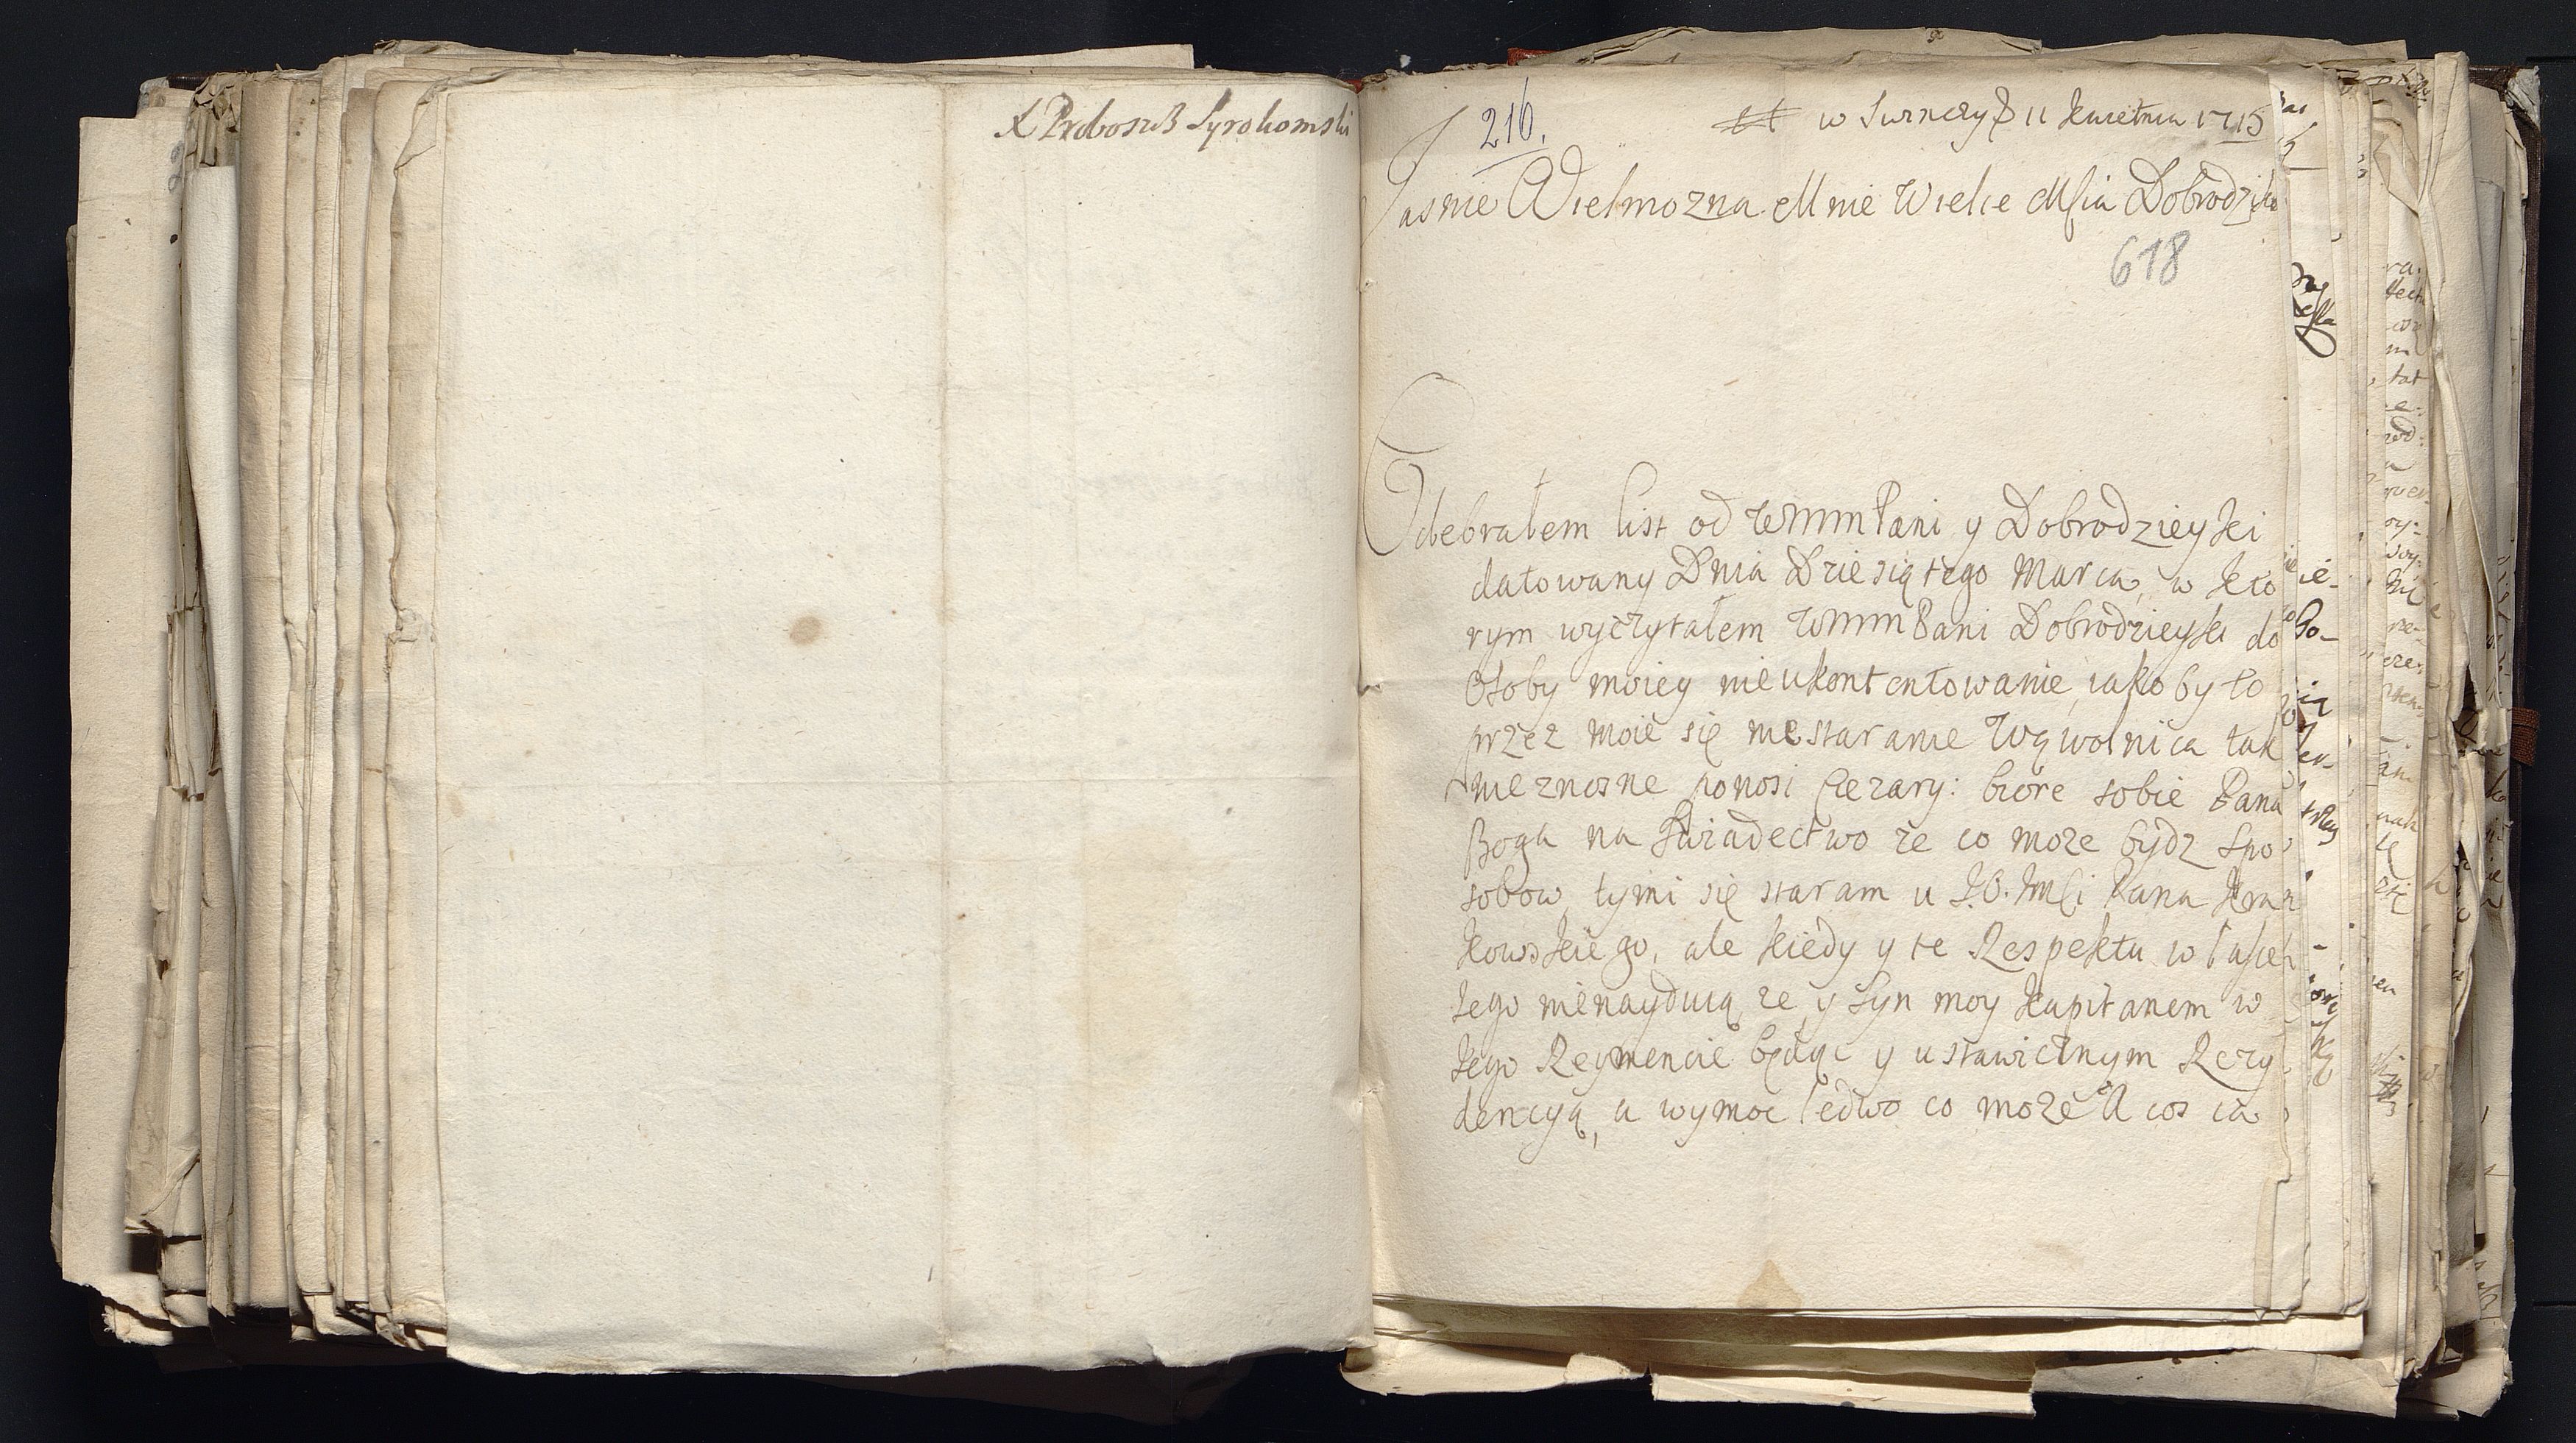 X Proboszcz Syrokomski
216.
w Surnczy D 11 Kwietnia 1715
Jasnie Wielmozna Mnie Wielce Mscia Dobrodziko
618
Odebrałem list od WMMMPani y Dobrodzieyki
datowany Dnia Dziesiątego Marca, w kto
rym wyczytałem WMMMPani Dobrodzieyki do
Osoby moiey nieukontentowanie, iakoby to
przez moie się niestaranie Wąwolnica tak
nieznosne ponosi Cięzary: biorę sobie Pana
Boga na Swiadectwo ze co moze bydz spo
sobow, tymi się staram u J.O. JMSci Pana Kra
kowskiego, ale kiedy y te Respektu w łasce
Jego nienayduią, ze y Syn moy Kapitanem w
Jego Reymencie będąc y ustawicznym Rezy
dencyą, a wymoc ledwo co moze A cos ia